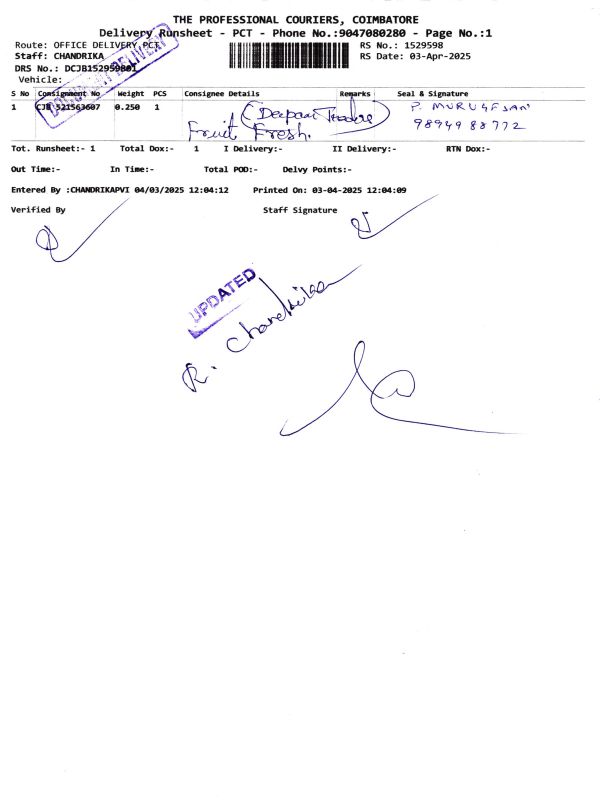 THE PROFESSIONAL COURIERS, COIMBATORE
Delivery Runsheet - PCT - Phone No.:9047080280 - Page No.:1
Route: OFFICE DELIVERY,PCT
RS No.: 1529598
Staff: CHANDRIKA
RS Date: 03-Apr-2025
DRS No.: DCJB152959801
Vehicle:
S No Consignment No Weight PCS Consignee Details Remarks Seal & Signature
1 CJB 521563607 0.250 1 (Deepam Traders) P. MURUGESAN
Fruit Fresh. 9894988772
Tot. Runsheet:- 1 Total Dox:- 1 I Delivery:- II Delivery:- RTN Dox:-
Out Time:- In Time:- Total POD:- Delvy Points:-
Entered By :CHANDRIKAPVI 04/03/2025 12:04:12 Printed On: 03-04-2025 12:04:09
Verified By Staff Signature
UPDATED
R. Chandrika